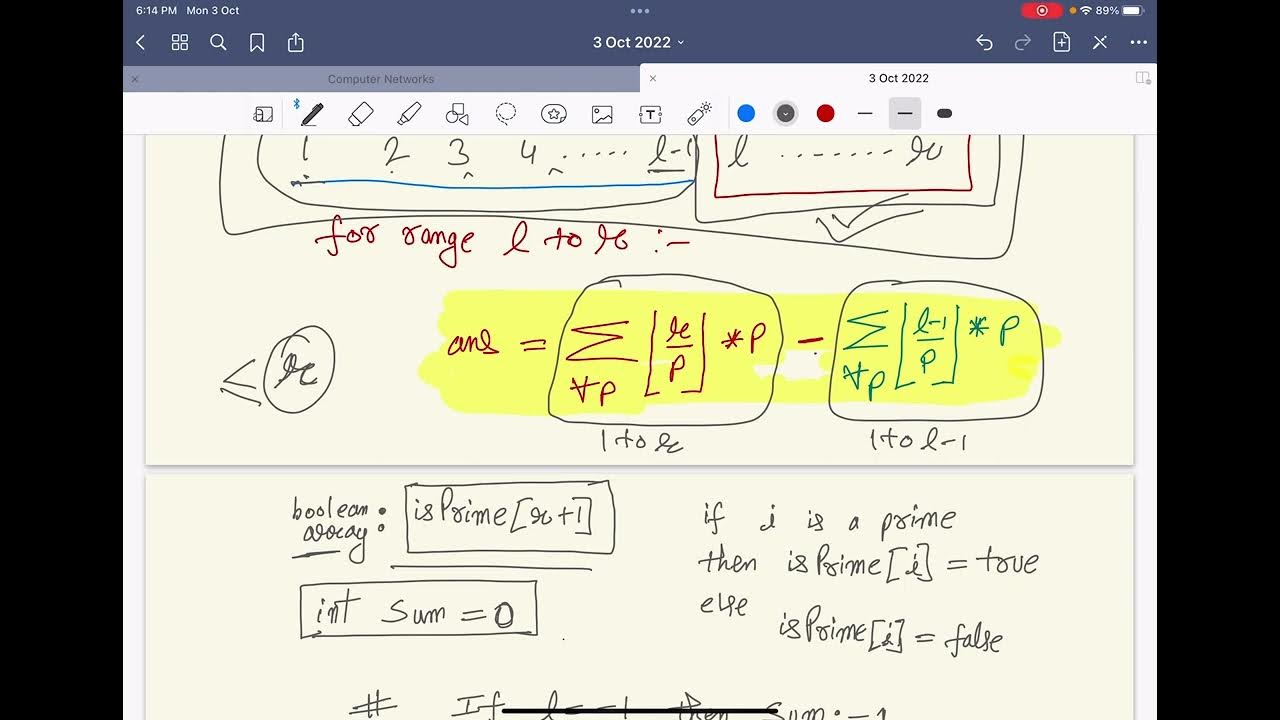 6:14 PM Mon 3 Oct
89%
3 Oct 2022
Computer Networks
3 Oct 2022
1 2 3 4 ..... l-1 l ........ r
for range l to r :-
ans = ∑∀p ⌊r/p⌋ * p - ∑∀p ⌊l-1/p⌋ * p
< r
1 to r 1 to l-1
boolean array: isPrime[r+1]
int Sum = 0
if i is a prime
then isPrime[i] = true
else
isPrime[i] = false
# If l==1 then Sum:-1